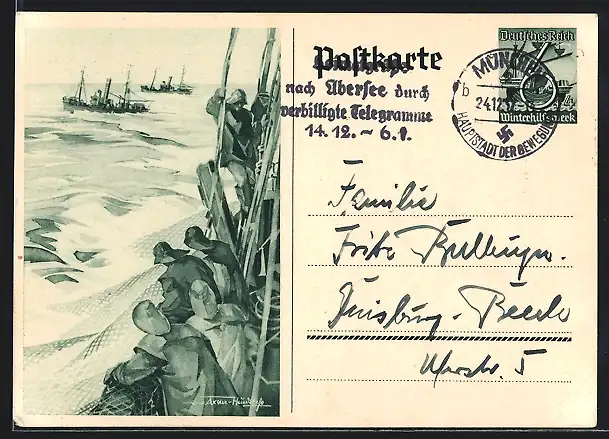 Deutsches Reich
Postkarte
nach Übersee durch
verbilligte Telegramme
14.12. - 6.1.
MÜNCHEN
b
24.12.
HAUPTSTADT DER BEWEGUNG
4
Winterhilfswerk
Familie
Fritz
Duisburg - Beeck
5